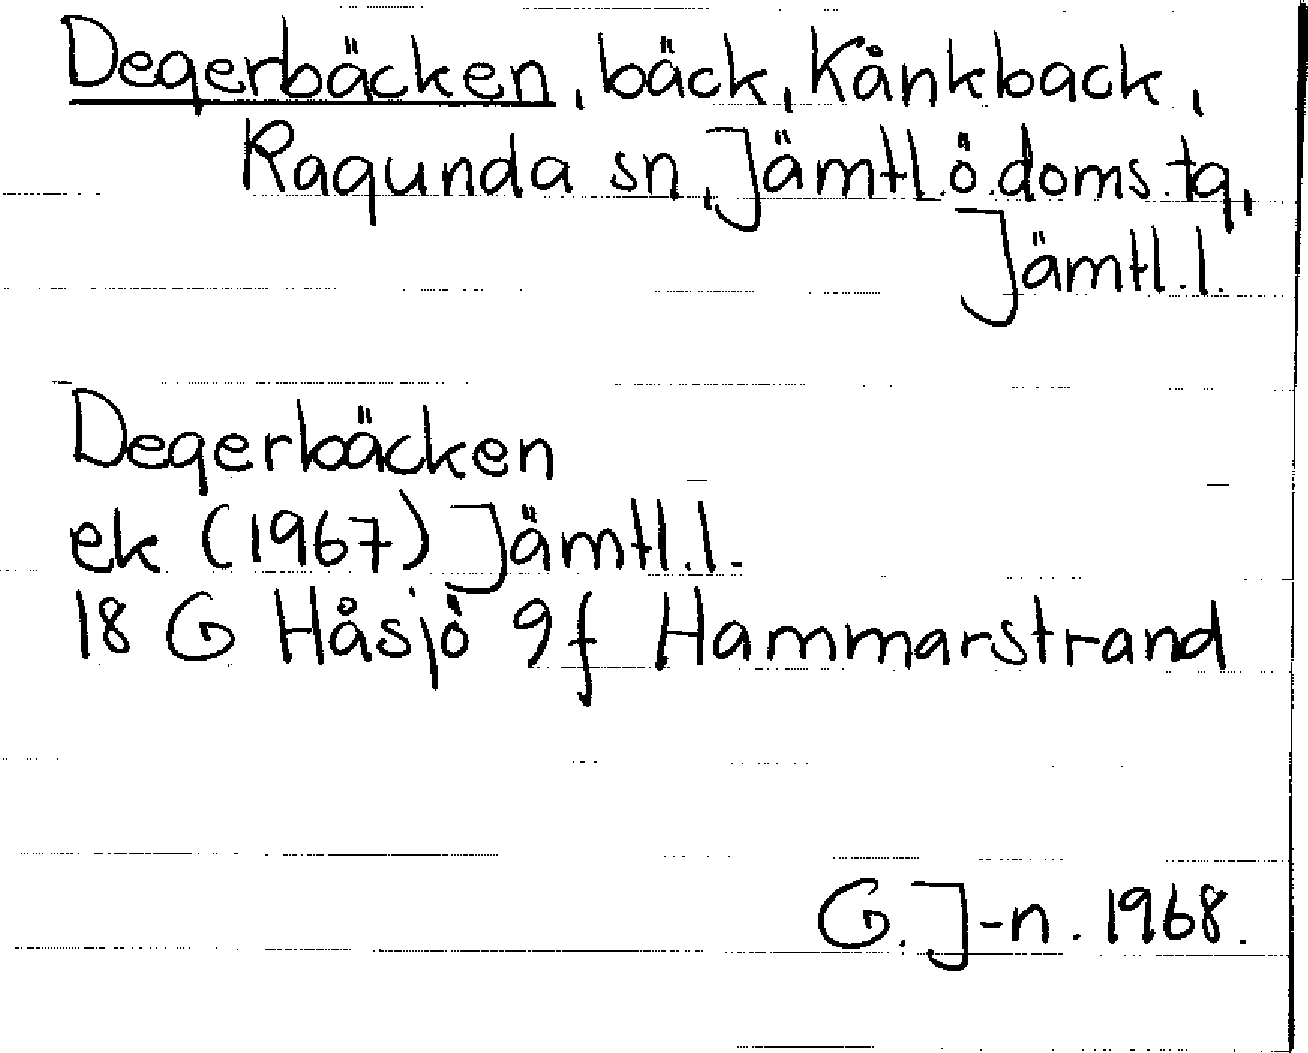 Degerbäcken, bäck, Kånkback,
Ragunda sn, Jämtl.ö.doms.tg,
Jämtl.l.
Degerbäcken
ek (1967) Jämtl.l.
18 G Håsjö 9f Hammarstrand
G. J-n. 1968.